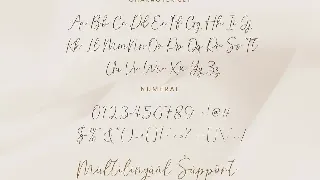 CHARACTER SET
Aa Bb Cc Dd Ee Ff Gg Hh Ii Jj
Kk Ll Mm Nn Oo Pp Qq Rr Ss Tt
Uu Vv Ww Xx Yy Zz
NUMERAL
0123456789
Multilingual Support